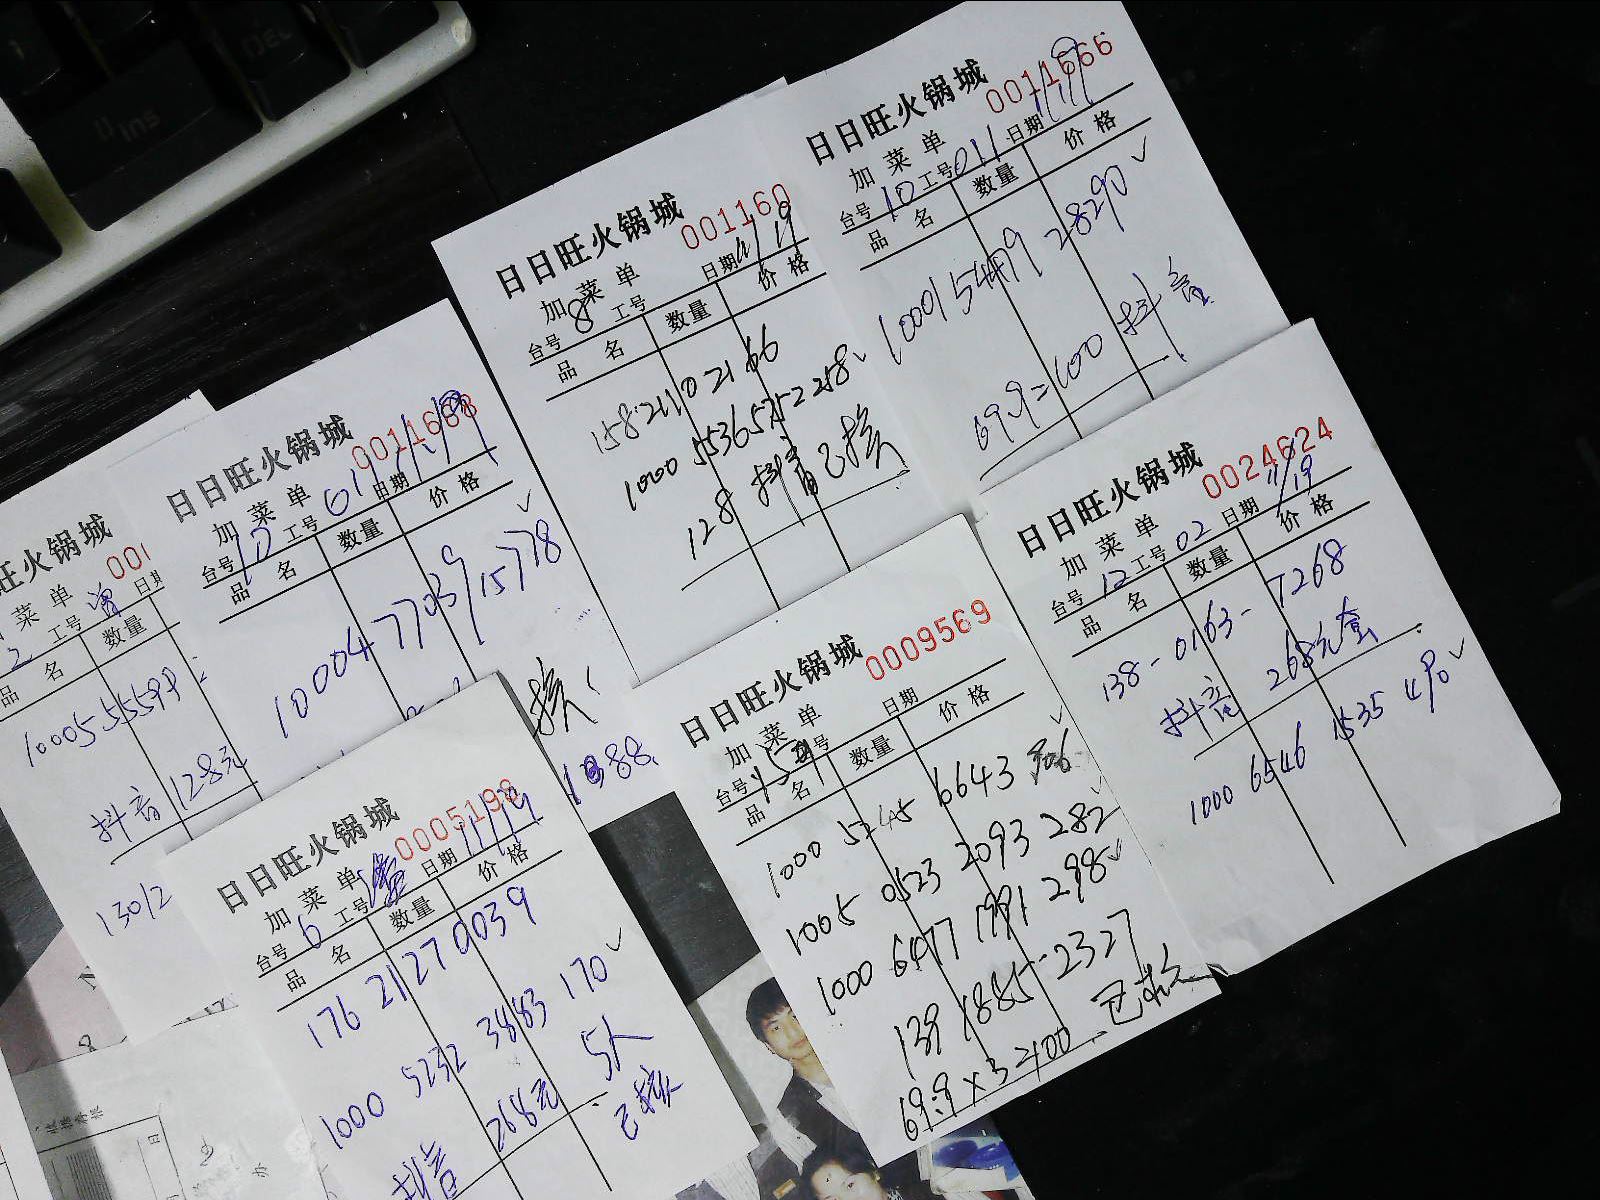 Ins
DEL
日日旺火锅城
0011666
加菜单
台号 10 工号 011 日期
品名 数量 价格
10001 5479 28290
69.9=100 抖音
日日旺火锅城
001166
加菜单
台号 8 工号 日期 11/19
品名 数量 价格
158 2110 2166
1000 5536 5752 258
128 抖音已核
日日旺火锅城
加菜单
台号 10 工号 011 日期
品名 数量 价格
10004 77039 15778
核
旺火锅城
001
菜单
2 工号 日期
品名 数量
抖音 128元
日日旺火锅城
0024624
加菜单
台号 12 工号 02 日期 11/19
品名 数量 价格
138-0163-7268
抖音 268元套
1000 6546 1535 490
日日旺火锅城
0009569
加菜单
台号 工号 日期
品名 数量 价格
1000 5245 6643
1005 0523 2093 282
1000 6477 1991 298
139 1885-2327
69.9×3=2100 已核
日日旺火锅城
0005198
加菜单
台号 6 工号 日期 11/19
品名 数量 价格
176 2127 0039
1000 5232 3883 170
抖音 268元 5人
已核